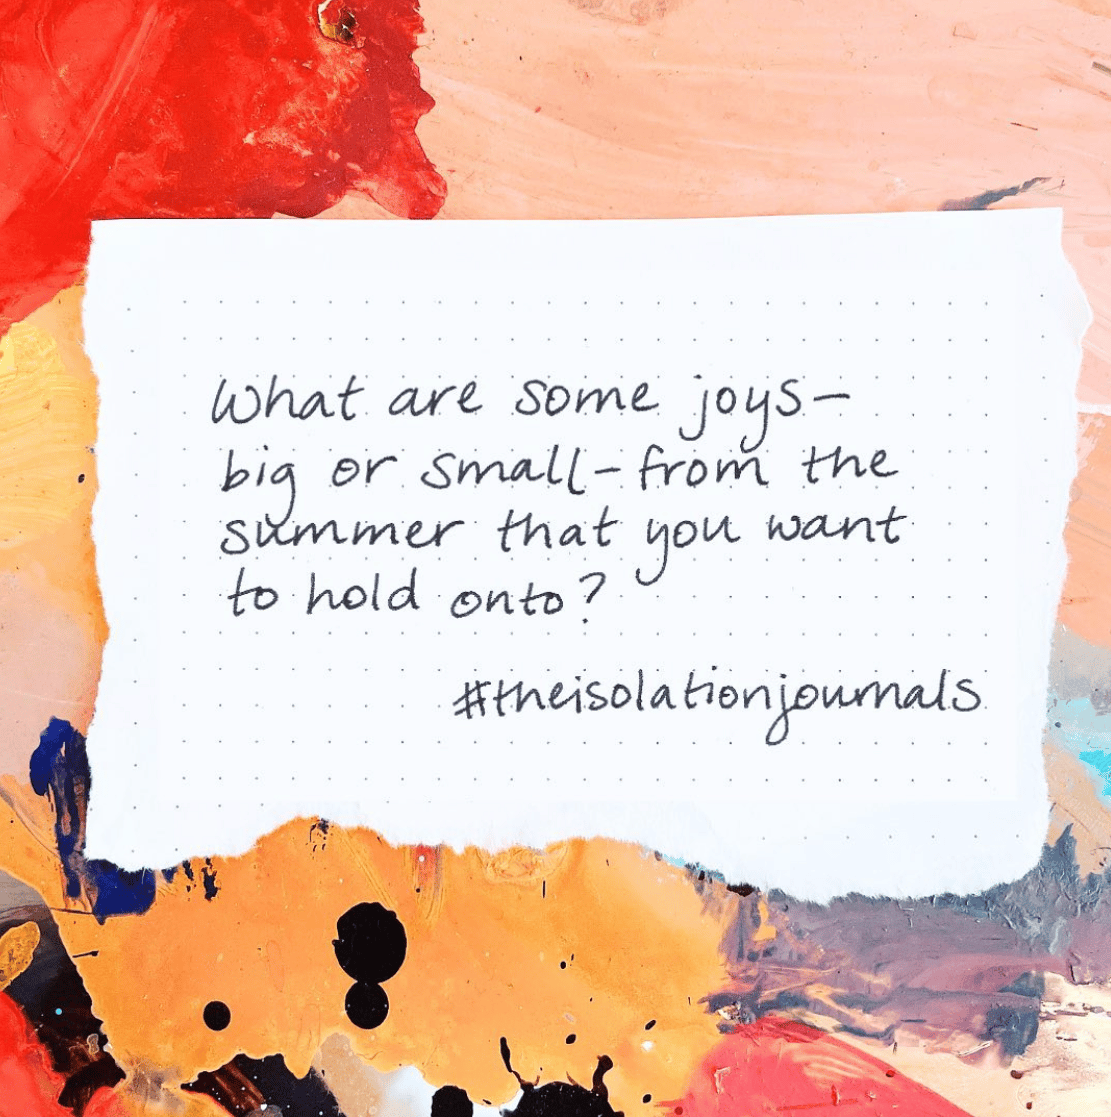 What are some joys—
big or small—from the
summer that you want
to hold onto?
#theisolationjournals